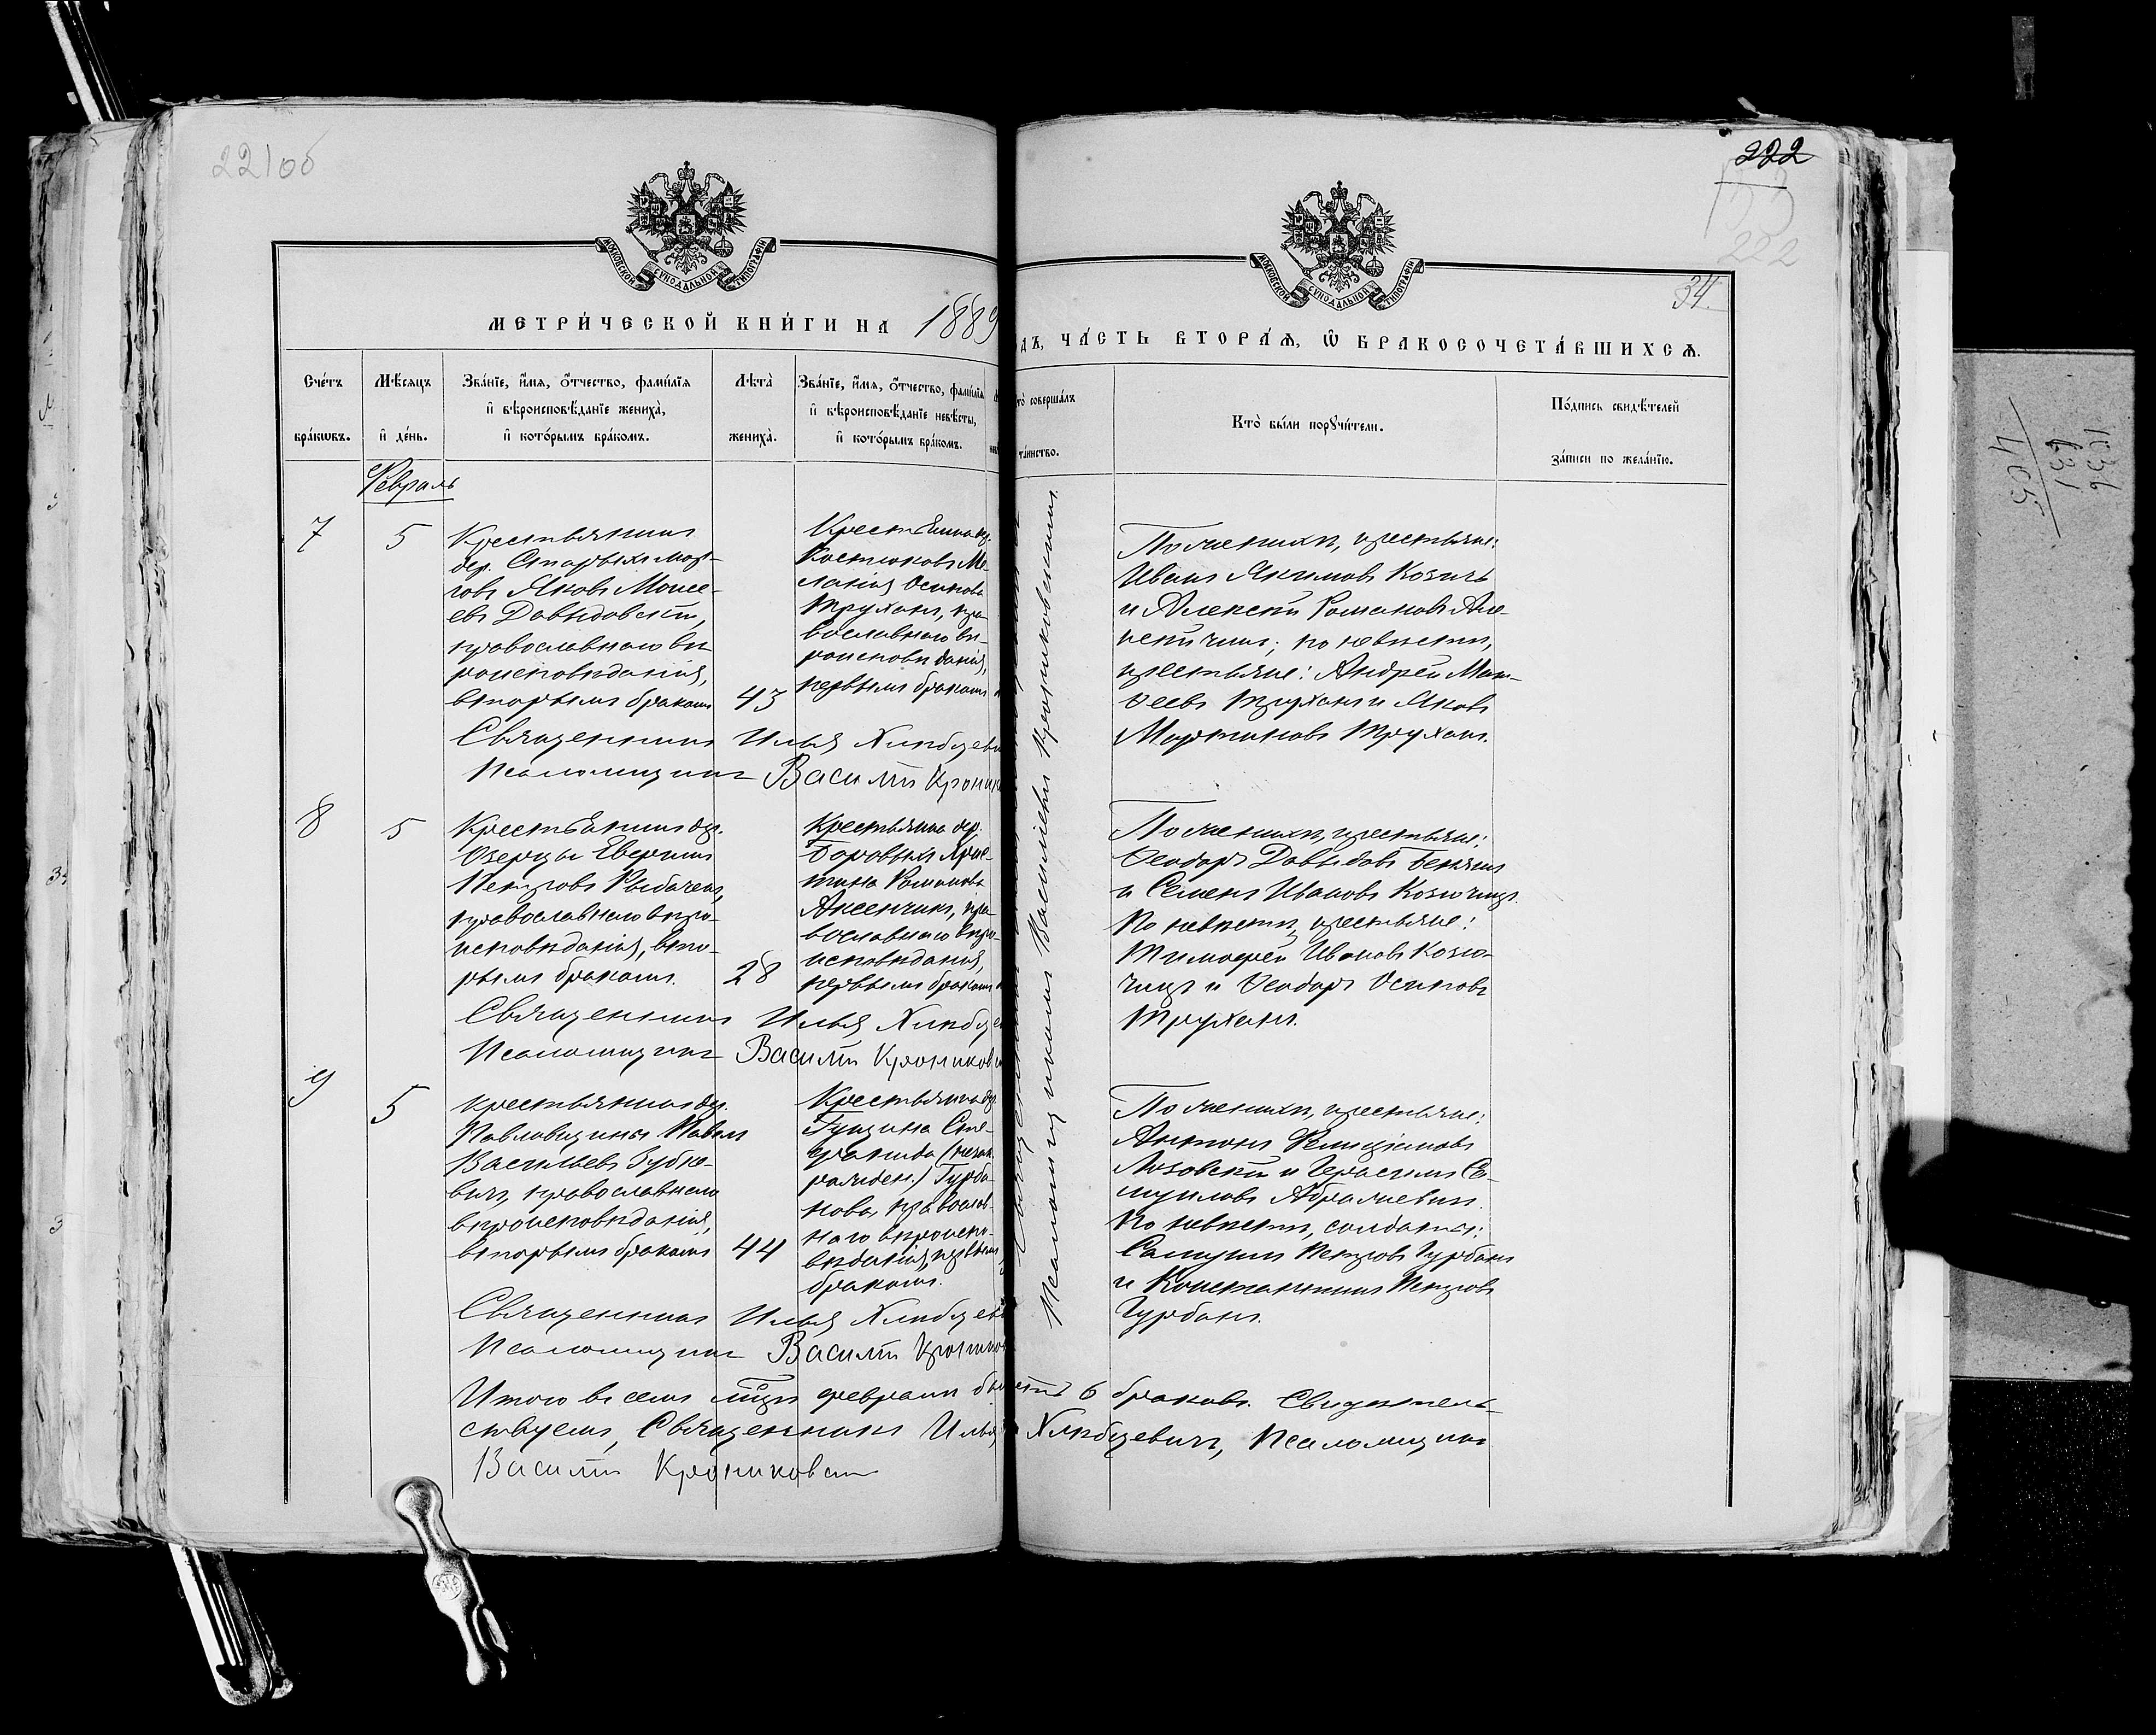 221об
222
222
34.
МОСКОВСКОЙ СУНОДАЛЬНОЙ ТИПОГРАФІИ
МОСКОВСКОЙ СУНОДАЛЬНОЙ ТИПОГРАФІИ
МЕТРИ́ЧЕСКОЙ КНИ́ГИ НА 1889
ДЪ, ЧА́СТЬ ВТОРА́Ѧ, Ѡ҆ БРАКОСОЧЕТА́ВШИХСѦ.
Сче́тъ бра́кѡвъ.
Мѣ́сяцъ и҆ де́нь.
Зва́нїе, и҆́мя, ѻ҆́тчество, фами́лїя и҆ вѣроисповѣ́данїе жениха̀, и҆ кото́рымъ бра́комъ.
Лѣта̀ жениха̀.
Зва́нїе, и҆́мя, ѻ҆́тчество, фами́лїя и҆ вѣроисповѣ́данїе невѣ́сты, и҆ кото́рымъ бра́комъ.
то̀ соверша́лъ та́инство.
Кто̀ бы́ли порꙋчи́тели.
По́дпись свидѣ́телей за́писи по жела́нїю.
Февраль
7
5
Крестьянинъ
дер. Старыхъ
Яковъ Моисе-
евъ Давыдовскій,
православнаго вѣ-
роисповѣданія,
вторымъ бракомъ
43
Крестьянка дер.
Костюковъ Ме-
ланія Осипова
Труханъ, пра-
вославнаго вѣ-
роисповѣданія,
первымъ бракомъ
По женихѣ, крестьяне:
Иванъ Якимовъ Козичъ
и Алексѣй Романовъ Але-
ксѣйчикъ; по невѣстѣ,
крестьяне: Андрей Мат-
ѳеевъ Труханъ и Яковъ
Мартиновъ Труханъ.
Священникъ Илья Хлѣбцеви
Псаломщикъ Василій Кроник
8
5
Крестьянинъ дер.
Озерцы
Петровъ Рыбаченъ,
православнаго вѣро-
исповѣданія, вто-
рымъ бракомъ.
28
Крестьянка дер.
Боровыхъ Хрис-
тина Романова
Аксенчикъ, пра-
вославнаго вѣро-
исповѣданія,
первымъ бракомъ
По женихѣ, крестьяне:
Ѳеодоръ Давыдовъ
и Семенъ Ивановъ Козючицъ.
По невѣстѣ, крестьяне:
Тимоѳей Ивановъ Козю-
чицъ и Ѳеодоръ Осиповъ
Труханъ.
Священникъ Илья Хлѣбце
Псаломщикъ Василій Крониковс
9
5
Крестьянинъ дер.
Павловщины Павелъ
Васильевъ Зубке-
вичъ, православнаго
вѣроисповѣданія,
вторымъ бракомъ
44
Крестьянка дер.
Гущина Сте-
фанида (незак.
рожден.) Гурба-
нова, православ-
наго вѣроиспо-
вѣданія, первымъ
бракомъ.
По женихѣ, крестьяне:
Антонъ Фелиціановъ
Лозовскій и Герасимъ Са-
муиловъ Абрамевичъ.
По невѣстѣ, солдаты:
Самуилъ Петровъ Гурбанъ
и Константинъ Петровъ
Гурбанъ.
Священникъ Илья Хлѣбцеви
Псаломщикъ Василій Кроников
Псаломщикомъ Василіемъ Крониковскимъ.
Итого въ семъ мцѣ февралѣ бы 6 браковъ. Свидѣтель-
ствуемъ, Священникъ Илья Хлѣбцевичъ, Псаломщикъ
Василій Крониковскій